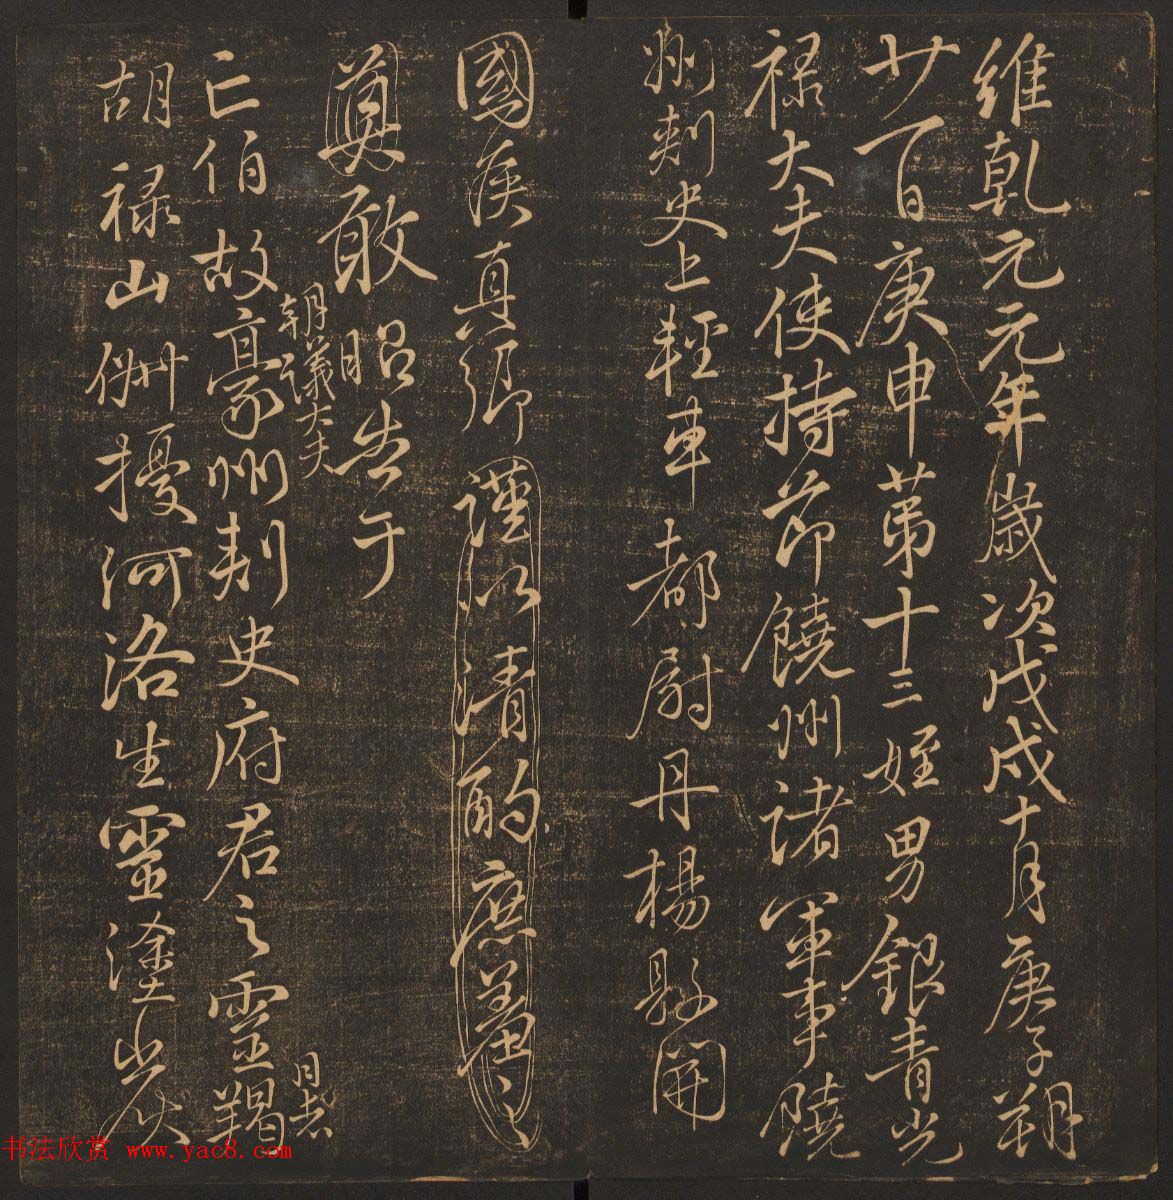 維乾元元年歲次戊戌十月庚子朔
廿一日庚申第十三姪男銀青光
祿大夫使持節饒州諸軍事饒
州刺史上輕車都尉丹楊縣開
國侯真卿謹以清酌庶羞之
奠敢昭告于
朝議大夫
亡伯故豪州刺史府君之靈日者羯
胡祿山俶擾河洛生靈塗炭
书法欣赏 www.yac8.com